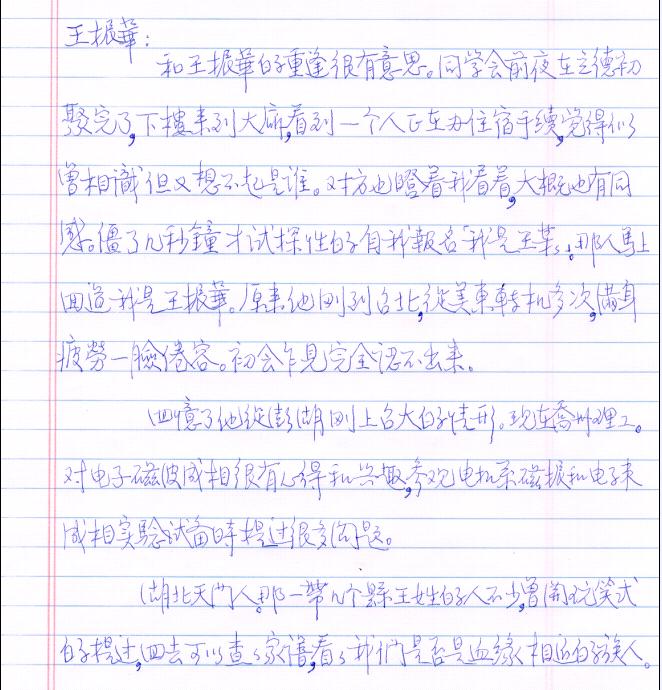 王振華:
和王振華的重逢很有意思。同学会前夜在立德初
聚完了,下樓来到大廳,看到一个人正在办住宿手續,覚得似
曽相識但又想不起是谁。对方也瞪着我看着,大概也有同
感。僵了几秒鐘才试探性的自我報名"我是王某",那人馬上
回道我是王振華。原来他刚到台北,從美東轉机多次,満身
疲勞一臉倦容。初会乍見完全认不出来。
回憶了他從澎湖刚上台大的情形。现在喬州理工。
对电子磁波成相很有心得和兴趣,参观电机系磁振和电子束
成相实驗設备時提过很多问题。
湖北天門人。那一帶几个縣王姓的人不少,曽開玩笑式
的提过,回去可以查查家譜,看看我们是否是血缘相近的族人。